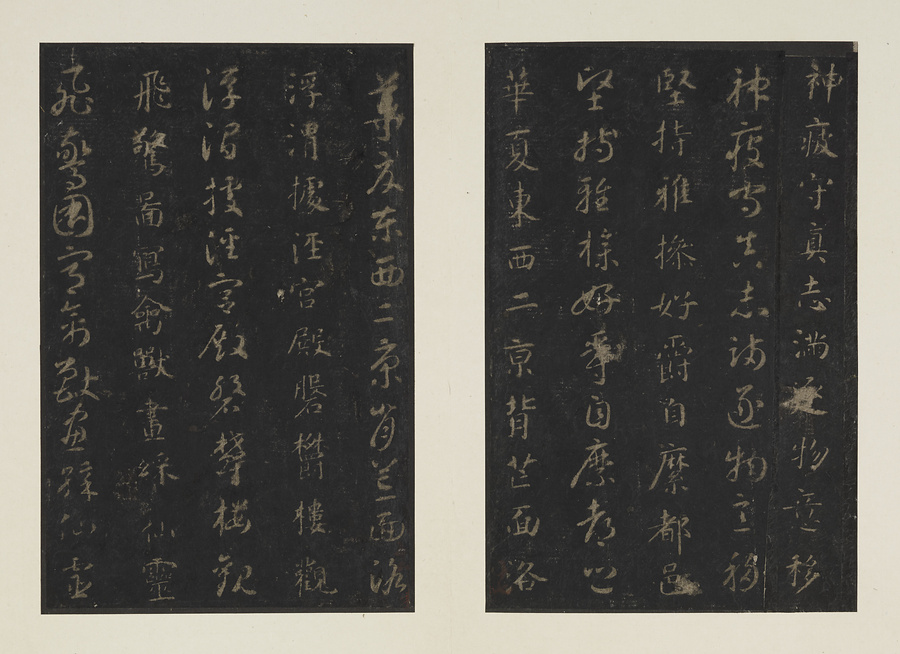 神疲守真志滿逐物意移
神疲守真志滿逐物意移
堅持雅操好爵自縻都邑
堅持雅操好爵自縻都邑
華夏東西二京背芒面洛
華夏東西二京背芒面洛
浮渭據涇宮殿磐欝樓觀
浮渭據涇宮殿磐欝樓觀
飛驚啚寫禽獸畫綵仙靈
飛驚圖寫禽獸畫綵仙靈